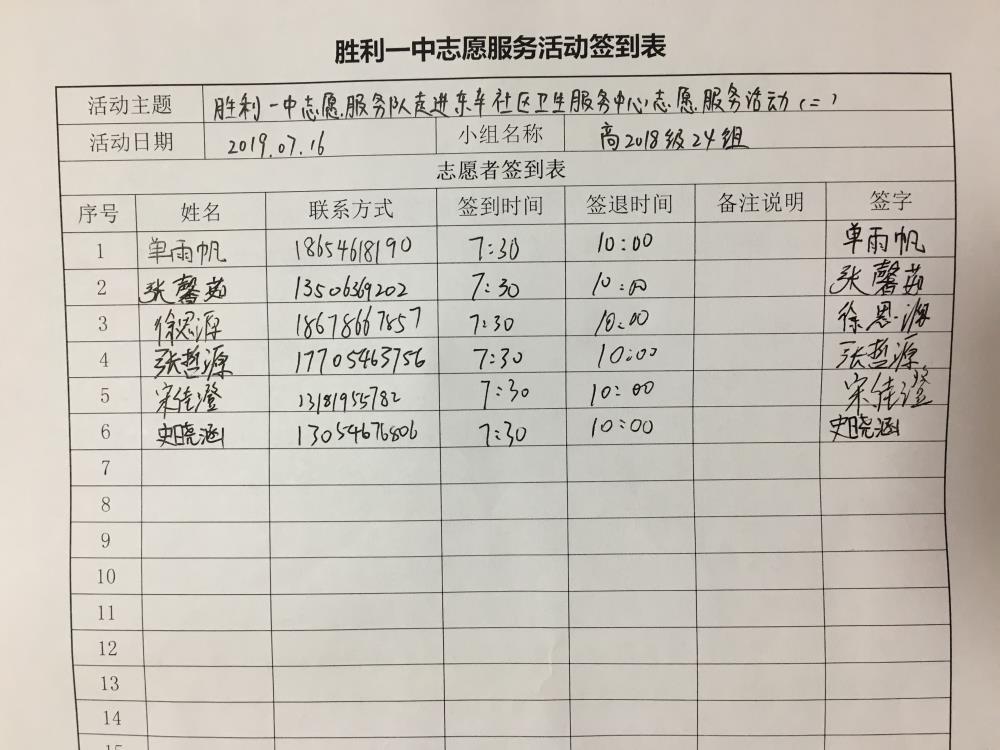 胜利一中志愿服务活动签到表
活动主题 胜利一中志愿服务队走进东辛社区卫生服务中心志愿服务活动(二)
活动日期 2019.07.16 小组名称 高2018级24组
志愿者签到表
序号 姓名 联系方式 签到时间 签退时间 备注说明 签字
1 单雨帆 18654618190 7:30 10:00 单雨帆
2 张馨茹 13506369202 7:30 10:00 张馨茹
3 徐恩源 18678667857 7:30 10:00 徐恩源
4 张哲源 17705463756 7:30 10:00 张哲源
5 宋佳澄 13181955782 7:30 10:00 宋佳澄
6 史晓涵 13054676806 7:30 10:00 史晓涵
7
8
9
10
11
12
13
14
15